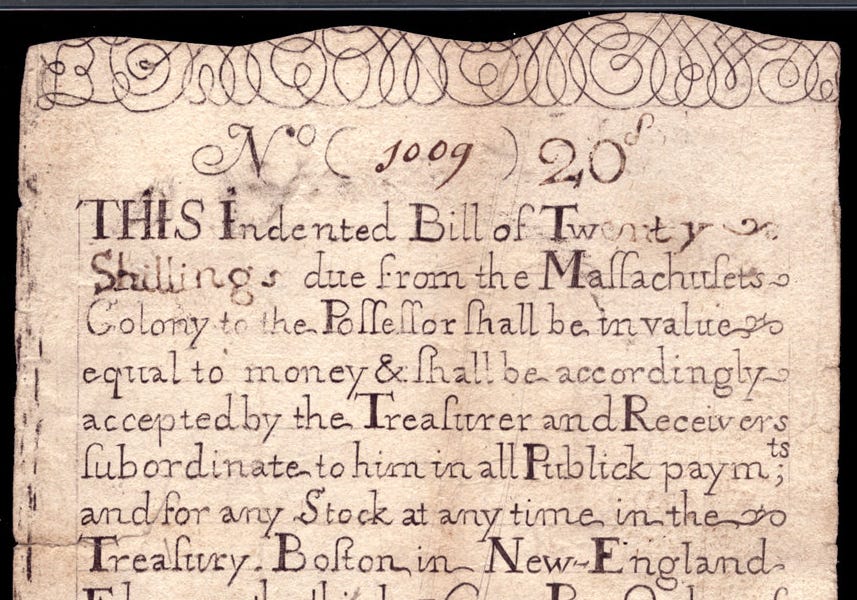 Nº ( 1009 ) 20ˢ
THIS Indented Bill of Twenty
Shillings due from the Maſſachuſets
Colony to the Poſſeſſor ſhall be in value
equal to money & ſhall be accordingly
accepted by the Treaſurer and Receivers
ſubordinate to him in all Publick paymᵗˢ;
and for any Stock at any time in the
Treaſury. Boſton in New-England